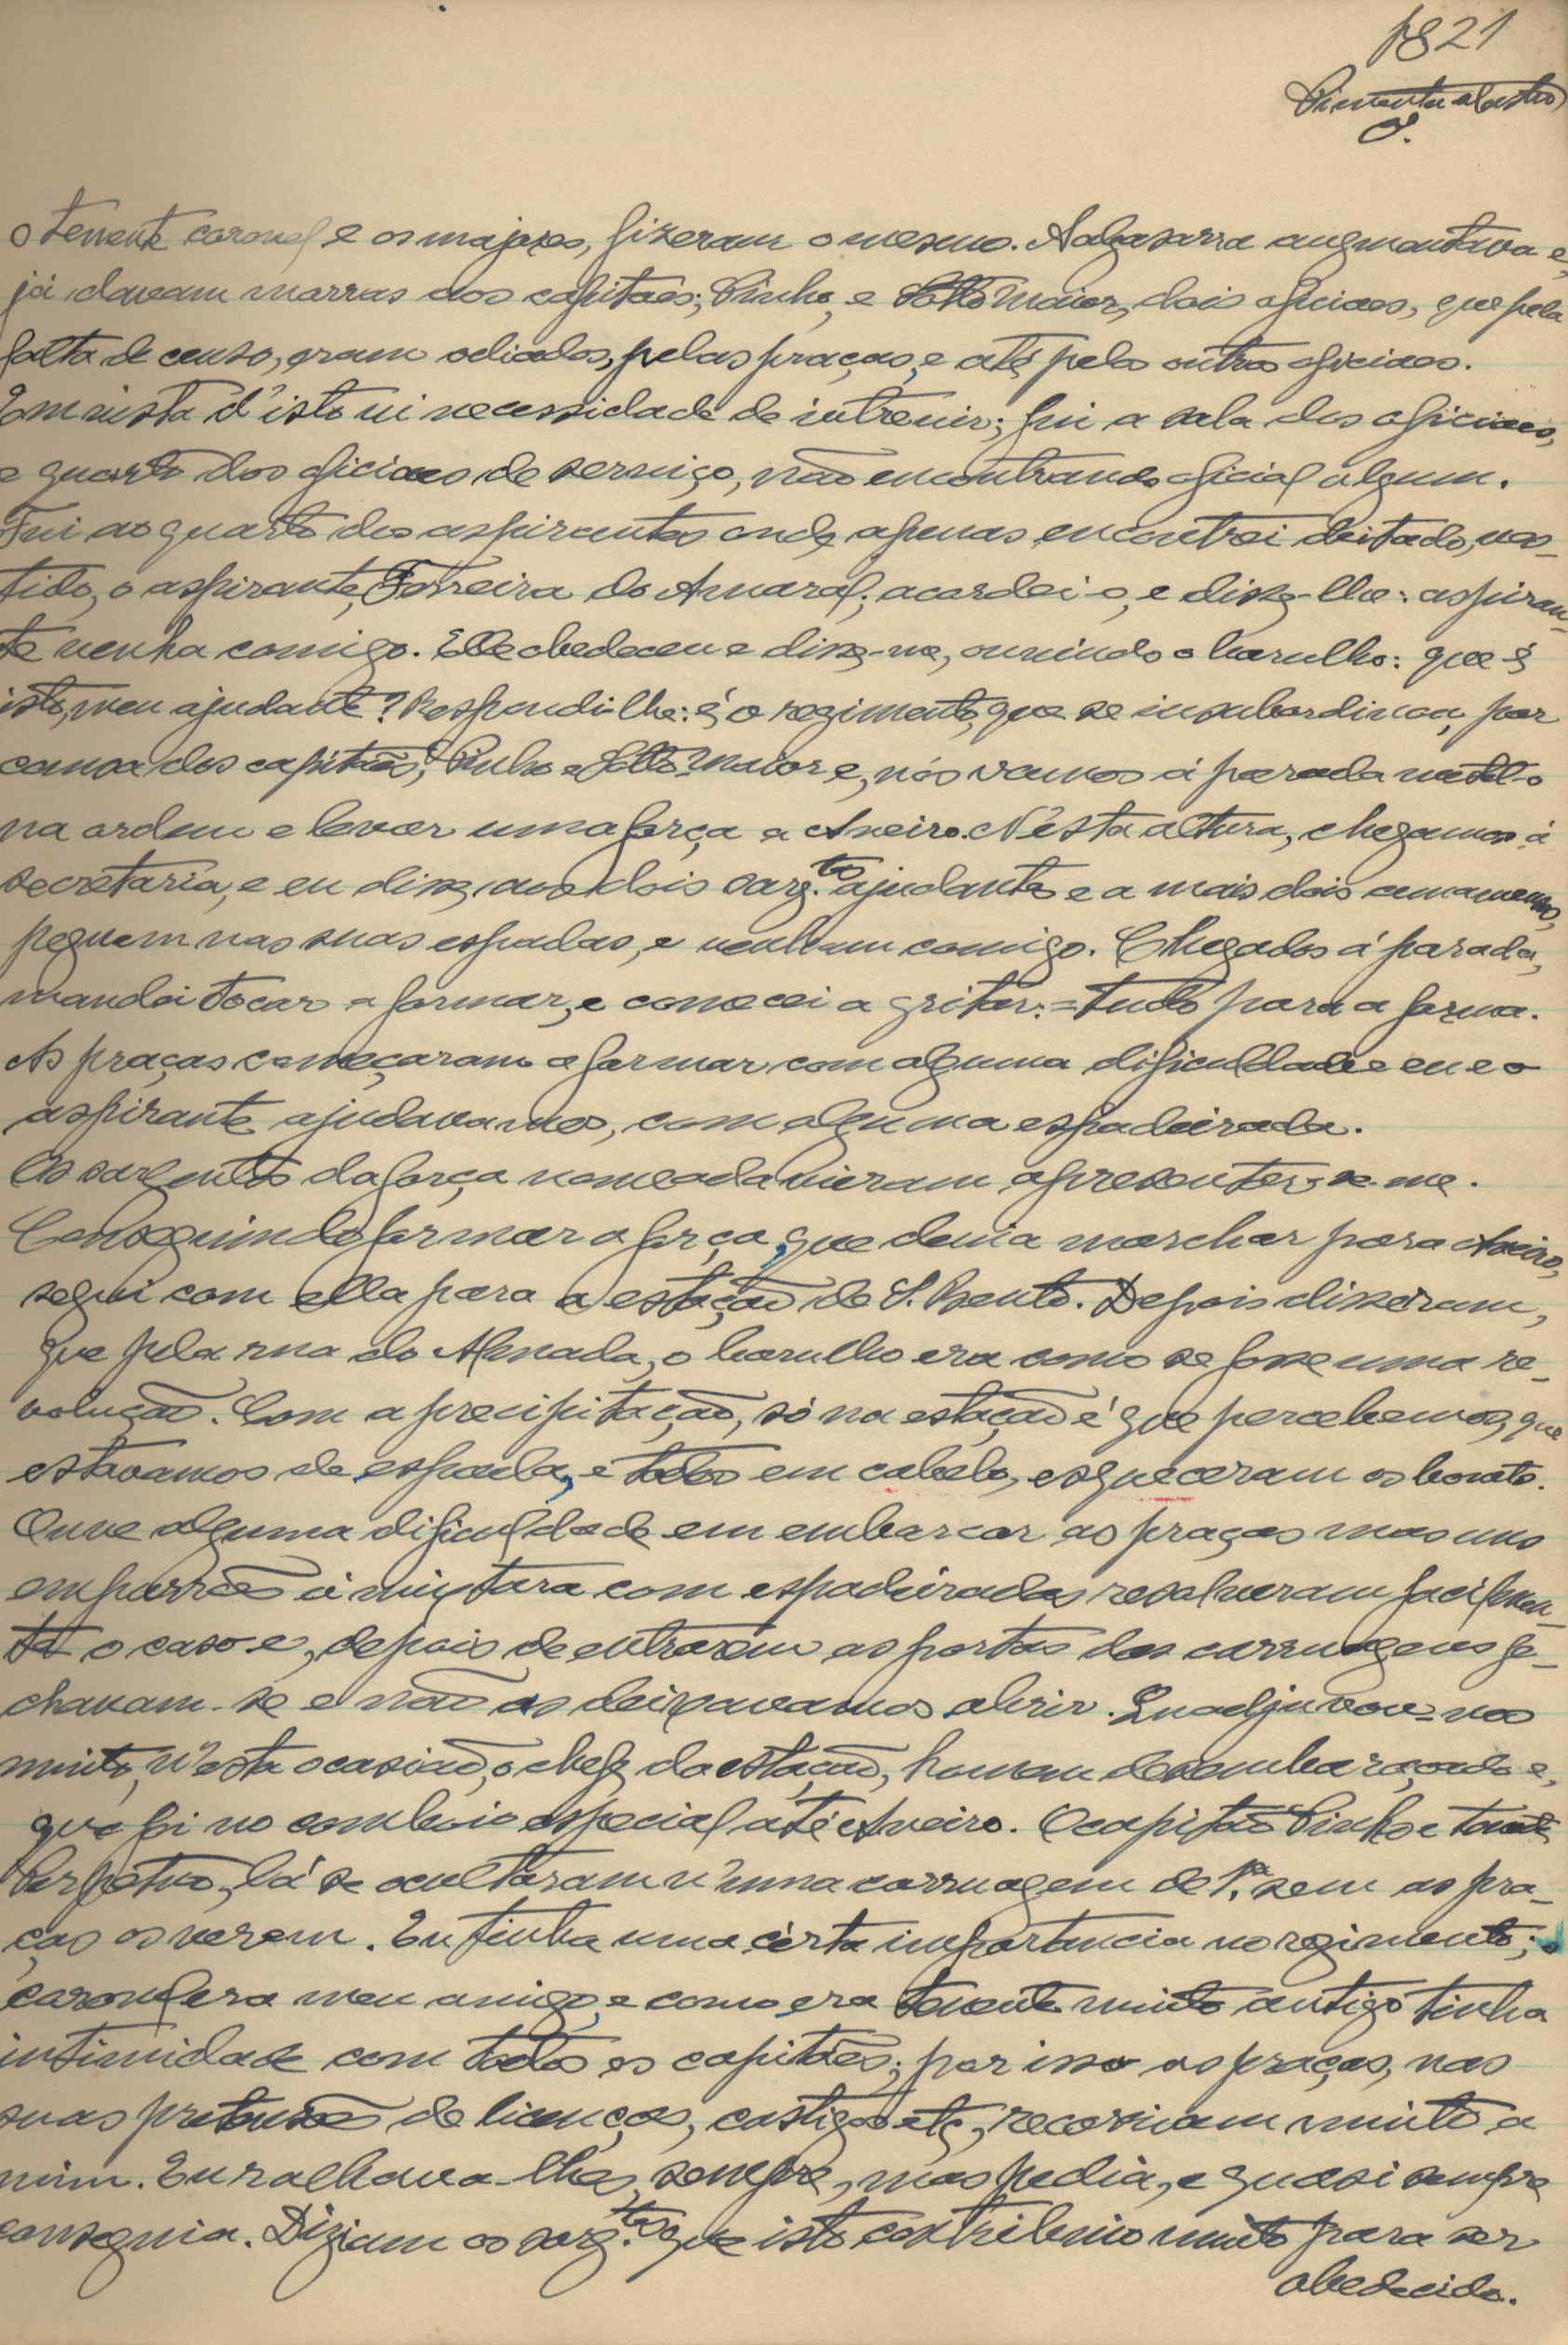 1821
Pimenta de Castro
o tenente coronel e os majores, fizeram o mesmo. A algasarra augmentava e,
já davam morras aos capitães; Pinho, e Sotto Maior, dois oficiaes, que pela
falta de censo, eram odiados, pelas praças, e até pelos outros oficiaes.
Em vista d'isto vi necessidade de intrevir; fui a sala dos oficiaes,
e quarto dos oficiaes de serviço, não encontrando oficial algum.
Fui ao quarto dos aspirantes onde apenas encontrei deitado, ves-
tido, o aspirante, Ferreira do Amaral; acordei-o, e disse-lhe: aspiran-
te venha comigo. Elle obedeceu e disse-me, ouvindo o barulho: que é
isto, meu ajudante? Respondi-lhe: é o regimento, que se insubordinou, por
causa dos capitães, Pinho e Sotto-Maior e, nós vamos á parada metel-o
na ordem e levar uma força a Aveiro. N'esta altura, chegamos á
secretaria, e eu disse, aos dois sarg.tos ajudantes e a mais dois amanuenses,
peguem nas suas espadas, e venham comigo. Chegados á parada,
mandei tocar a formar, e comecei a gritar: = tudo para a forma.
As praças começaram a formar com alguma dificuldade e eu e o
aspirante ajudavamos, com alguma espadeirada.
Os sargentos da força nomeada vieram apresentar-se-me.
Conseguindo formar a força, que devia marchar para Aveiro,
segui com ella para a estação de S. Bento. Depois disseram,
que pela rua do Almada, o barulho era como se fosse uma re-
volução. Com a precipitação, só na estação é que percebemos, que
estavamos de espada, e todos em cabelo, esqueceram os bonets.
Ouve alguma dificuldade em embarcar as praças mas uns
emparrões á mistura com espadeiradas resolveram facilmen-
te o caso e, depois de entrarem as portas das carruagens fe-
chavam-se e não as deixavamos abrir. Quadjuvou-nos
muito, n'esta ocasião, o chefe da estação, homem desembaraçado e,
que foi no comboio especial até Aveiro. O capitão Pinho e tenente
Perpetuo, lá se ocultaram n'uma carruagem de 1.ª sem as pra-
ças os verem. Eu tinha uma certa importancia no regimento; o
coronel era meu amigo, e como era tenente muito antigo tinha
intimidade com todos os capitães; por isso as praças, nas
suas pretensões de licenças, castigos etc, recorriam muito a
mim. Eu ralhava-lhes, sempre, mas pedia, e quasi sempre
conseguia. Diziam os sarg.tos que isto contribuio muito para ser
obedecido.